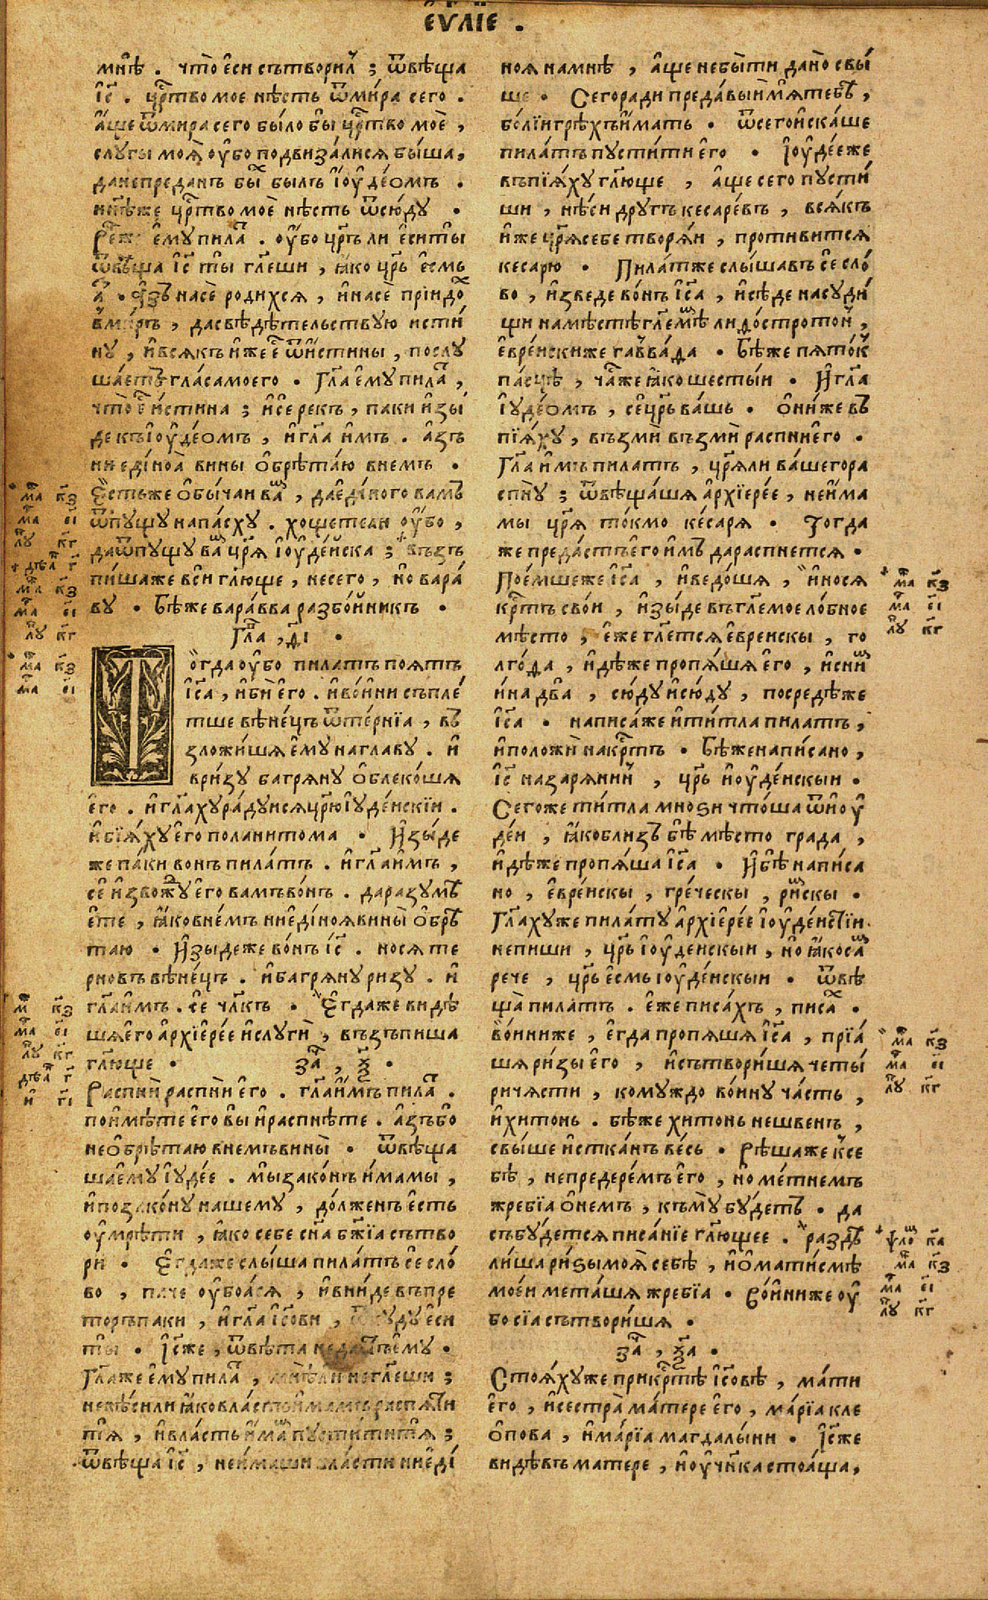 еѵⷢ҇лїе .
мнѣ . что̀ є҆сѝ сътвори́лъ ; ѿвѣща
і҆с҃ . црⷭ҇тво мое нѣсть ѿ ми́ра сего .
а҆́ще ѿ мира сего бы́ло бы црⷭ҇тво моѐ ,
слугы̀ моѧ̀ оу҆́бо подвиза́лисѧ бы́ша ,
да не преданъ быⷯ былъ і҆оу҆де́омъ .
нн҃ѣ же црⷭ҇тво моѐ нѣсть ѿсю́ду .
є҆му пилаⷮ . оу҆́бо цр҃ь ли є҆сѝ ты̀
ѿвѣща і҆с҃ ты̀ гл҃еши , ꙗ҆́ко цр҃ь є҆́смь
а҆зъ на сѐ роди́хсѧ , и҆ на сѐ прїидоⷯ
в миръ , да свѣдѣ́тельствую и҆сти́
ну , и҆ всѧ́къ и҆же єⷭ҇ ѿ и҆́стины , послу
шаетъ гла́са моего . Гл҃а є҆му пилаⷮ ,
что̀ єⷭ҇ и҆́стина ; и҆ се рекъ , паки и҆зы́
де къ і҆оу҆де́омъ , и҆ гл҃а и҆мъ . а҆зъ
ни еди́ноѧ̀ вины̀ ѻ҆брѣта́ю в немъ .
Є҆́сть же ѻ҆бы́чаи ваⷲ , да еди́ного вамъ
ѿпущу на па́сху . хощете ли оу҆бо ,
да ѿпущу́ ваⷨ цр҃ѧ і҆оу҆де́йска ; възъ
пи́ша же всѝ гл҃юще , не сего̀ , но̀ вара́
ву . Бѣ́ же вара́вва разбо́йникъ .
Гл҃а , д҃і .
Тогда оу҆бо пилатъ поѧтъ
і҆с҃а , и҆ бѝ е҆го̀ . и҆ во́ини съпле́
тше вѣне́цъ ѿ те́рнїа , въ
зложи́шѧ є҆му на главу . и҆
в ри́зу багрѧ́ну ѻ҆блеко́шѧ
е҆го . и҆ гл҃аху ра́дуисѧ цр҃ю і҆уде́искїи .
и҆ бїѧ́ху є҆го по лани́тома . И҆зы́де
же паки вонъ пила́тъ . и҆ гл҃а и҆мъ ,
сѐ и҆звожⷣу є҆го вамъ во́нъ . да разумѣ
е́те , ꙗ҆́ко в не́мъ ни еди́ноѧ вины̀ ѻ҆брѣ
таю . И҆зыде же во́нъ і҆с҃ . носѧ те
рновъ вѣне́цъ . и҆ багрѧну ри́зу . и҆
гл҃а и҆́мъ . се́ чл҃къ . Є҆гда́ же видѣ
шѧ є҆го архїере́е и҆ слугѝ , възъпиша
гл҃юще . заⷱ҇ , ѯ҃ .
Распнѝ распнѝ є҆го . гл҃а и҆́мъ пилаⷮ .
поимѣте є҆го вы и҆ распнѣ́те . а҆зъ бо
не ѻ҆брѣтаю в немъ вины̀ . ѿвѣща
ша є҆му і҆удее . мы зако́нъ и҆́мамы ,
и҆ по зако́ну нашему , до́лженъ є҆сть
оу҆мре́ти , ꙗ҆ко себе сн҃а бж҃їа сътво
ри . Є҆гда́ же слы́ша пила́тъ се сло́
во , паче оу҆боа́сѧ , и҆ вни́де въ пре
торъ паки , и҆ гл҃а і҆с҃ови , ѿкуду є҆си
ты . І҆с҃ же , ѿвѣ́та не да́стъ є҆му .
Гл҃а же є҆му пилаⷮ , мнѣ ли не гл҃еши ;
не вѣ́си ли ꙗ҆ко власть и҆мамъ распѧ́ти
тѧ , и҆ власть и҆́маⷨ пусти́ти тѧ ;
ѿвѣща і҆с҃ , не и҆́маши власти ни еди́
ноѧ на мнѣ , а҆́ще не бы́ти дано̀ свы́
ше . Сего ра́ди преда́выи мѧ̀ тебѣ ,
бо́лїи грѣ́хъ и҆́мать . ѿсего и҆ска́ше
пила́тъ пусти́ти є҆го . І҆оу҆де́е же
въпїѧ́ху гл҃юще , а҆ще сего пусти́
ши , нѣ́си другъ кесаре́въ , всѧ́къ
и҆́же цр҃ѧ себе творѧи , проти́витсѧ
кесарю . Пила́тъ же слы́шавъ се сло́
во , и҆зведе во́нъ і҆с҃а , и҆ сѣ́де на суди́
щи на мѣ́стѣ гл҃емѣ́ⷨ лидо́стротоⷩ ,
е҆вре́искиже гавва́да . Бѣ́ же пѧто́къ
па́сцѣ , ча́ же ꙗ҆ко шесты́и . И҆ гл҃а
і҆уде́омъ , се́ цр҃ь ва́шь . ѻ҆ни́же въ
пїѧ́ху , възмѝ възмѝ распни є҆го .
Гл҃а и҆мъ пилатъ , цр҃ѧ ли ва́шего ра
спну́ ; ѿвѣща́шѧ а҆рхїере́е , не и҆́ма
мы цр҃ѧ то́кмо ке́сарѧ . Тогда
же преда́стъ є҆го и҆́мъ да распнетсѧ .
Пое́мше же і҆с҃а , и҆ ведо́шѧ , и҆ носѧ
крⷭ҇тъ свои , и҆зы́де въ гл҃емое ло́бное
мѣ́сто , е҆́же гл҃етсѧ є҆вреискы , го
лго́да , и҆дѣ́же пропѧ́шѧ є҆го , и҆ сниⷨ
и҆на два̀ , сю́ду и҆ сю́ду , посредѣ́ же
і҆с҃а . написа́ же и҆ ти́тла пилатъ ,
и҆ положѝ на крⷭ҇тъ . Бѣ́ же написано ,
і҆с҃ назарѧнинъ , цр҃ь і҆оу҆де́искыи .
Сего́ же ти́тла мноѕи что́ша ѿ і҆оу҆
де́и , ꙗ҆ко близъ бѣ мѣ́сто града ,
и҆дѣ́же пропѧ́ша і҆с҃а . И҆ бѣ̀ написа
но , е҆вре́искы , гре́ческы , ри́мскы .
Гл҃аху же пилату а҆рхїере́е і҆оу҆де́истїи .
не пиши , цр҃ь і҆оу҆де́искыи , но ꙗ҆ко саⷨ
рече , цр҃ь є҆смь і҆оу҆де́искыи . ѿвѣ
ща̀ пилатъ . е҆́же писа́хъ , писаⷯ .
Во́ини же , е҆гда пропѧ́шѧ і҆с҃а , прїа́
шѧ ри́зы є҆го , и҆ сътвори́шѧ четы́
ри ча́сти , комуждо во́ину ча́сть ,
и҆ хитонь . бѣ́ же хитонь не шве́нъ ,
свы́ше и҆стка́нъ ве́сь . Рѣ́ша же к се
бѣ , не предере́мъ є҆го , но ме́тнемъ
жребїа ѻ҆ не́мъ , къму бу́детъ . да
събу́детсѧ писа́нїе гл҃ющее . раздѣ
ли́ша риѕы моѧ̀ себѣ̀ , и҆ ѻ҆ мати́смѣ
мое́и мета́шѧ жребїа . Во́ини же оу҆
бо сїа сътвори́шѧ .
заⷱ҇ , ѯ҃а .
Стоѧ́ху же при крⷭ҇тѣ і҆с҃овѣ , ма́ти
его , и҆ сестра̀ ма́тере є҆го , ма́рїа кле
ѻ҆́пова , и҆ ма́рїа магдалы́ни . І҆с҃ же
ви́дѣвъ матере , и҆ оу҆чн҃ка стоа́ща ,